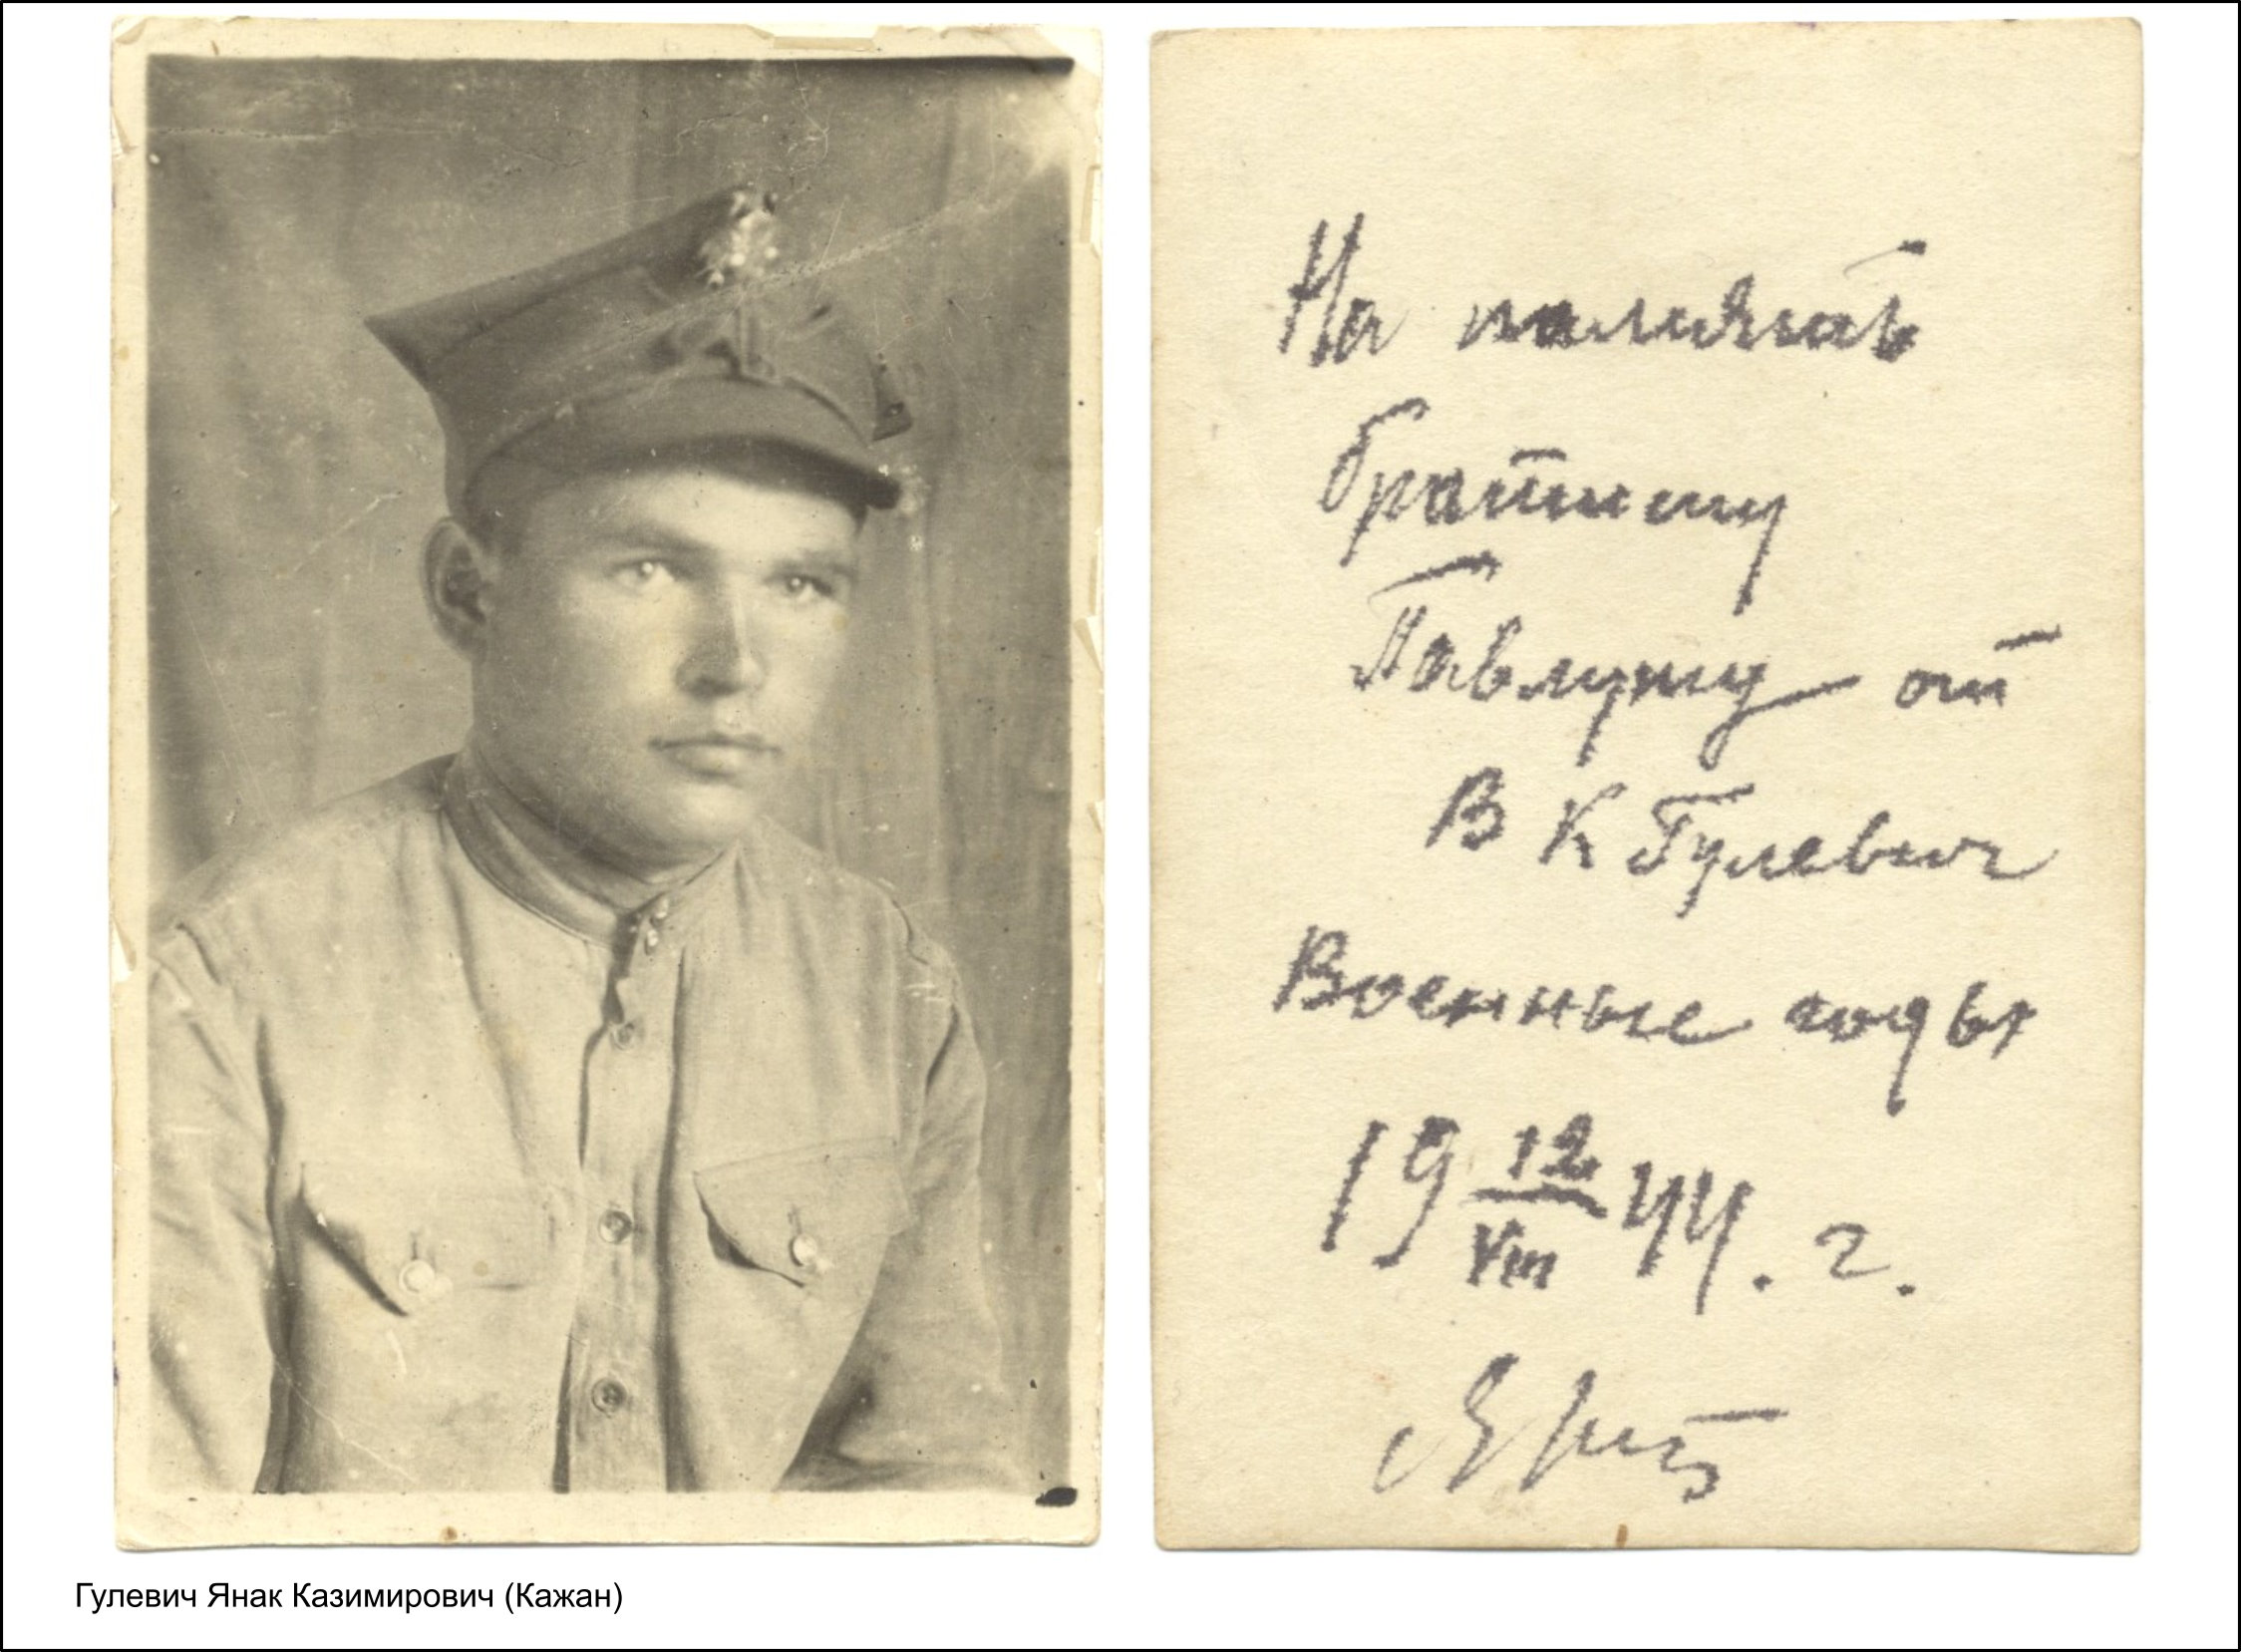 На память
братишу
Павлушу от
В К Гулевич
Военные годы
19 12/VIII 44. г.
Гулевич Янак Казимирович (Кажан)